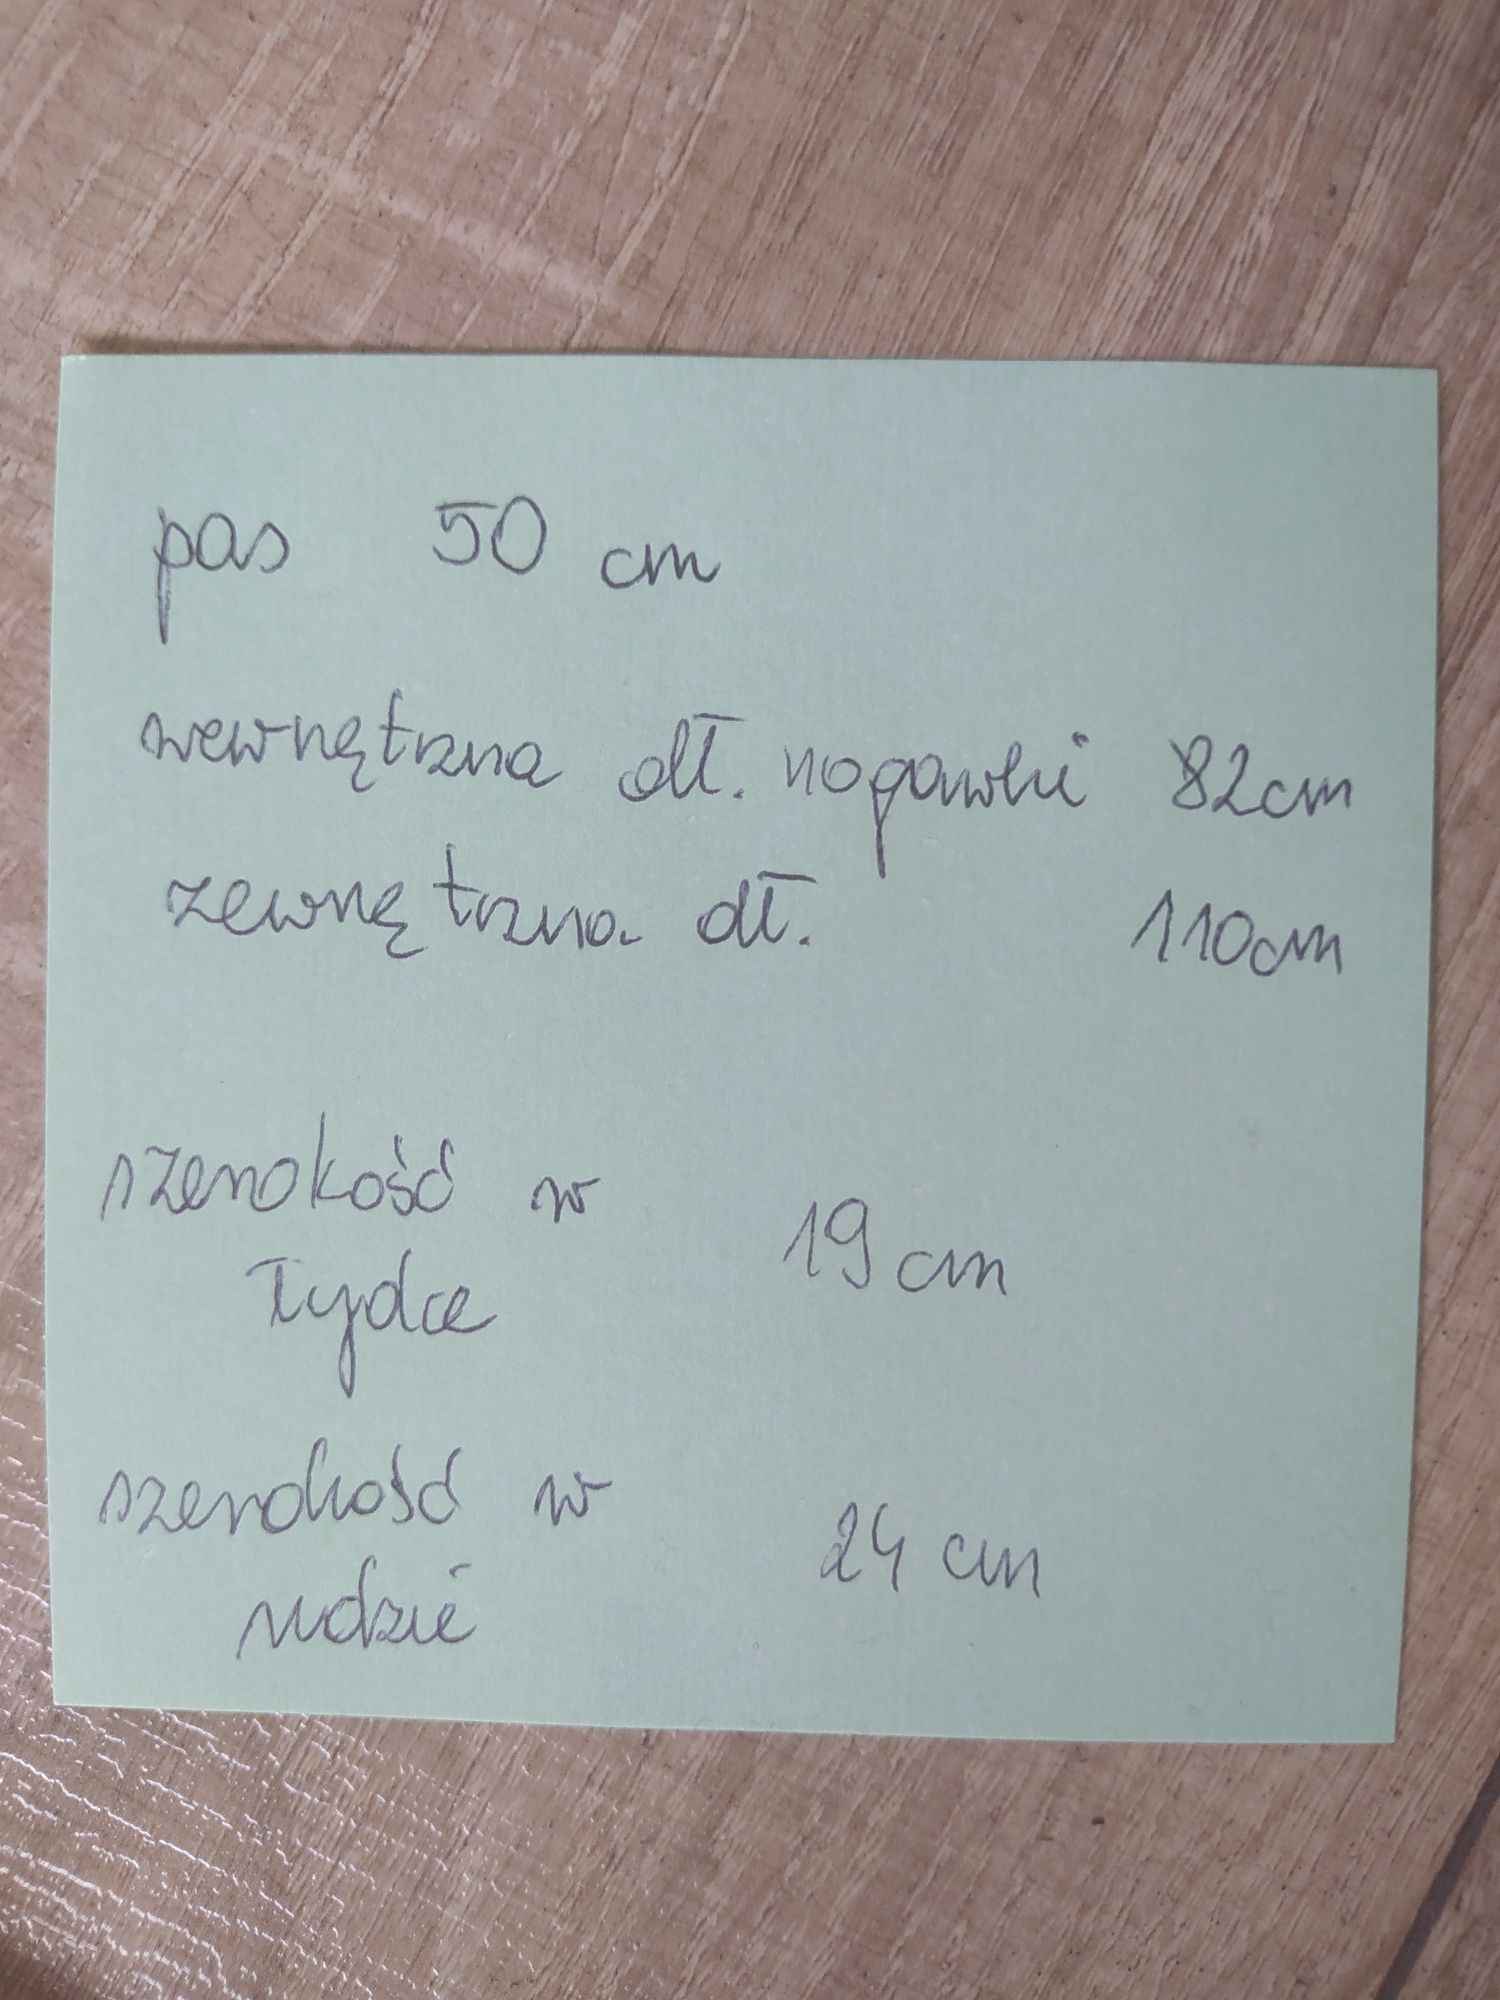 pas 50 cm
wewnętrzna dł. nogawki 82cm
zewnętrzna dł. 110cm
szerokość w
łydce 19 cm
szerokość w
udzie 24 cm